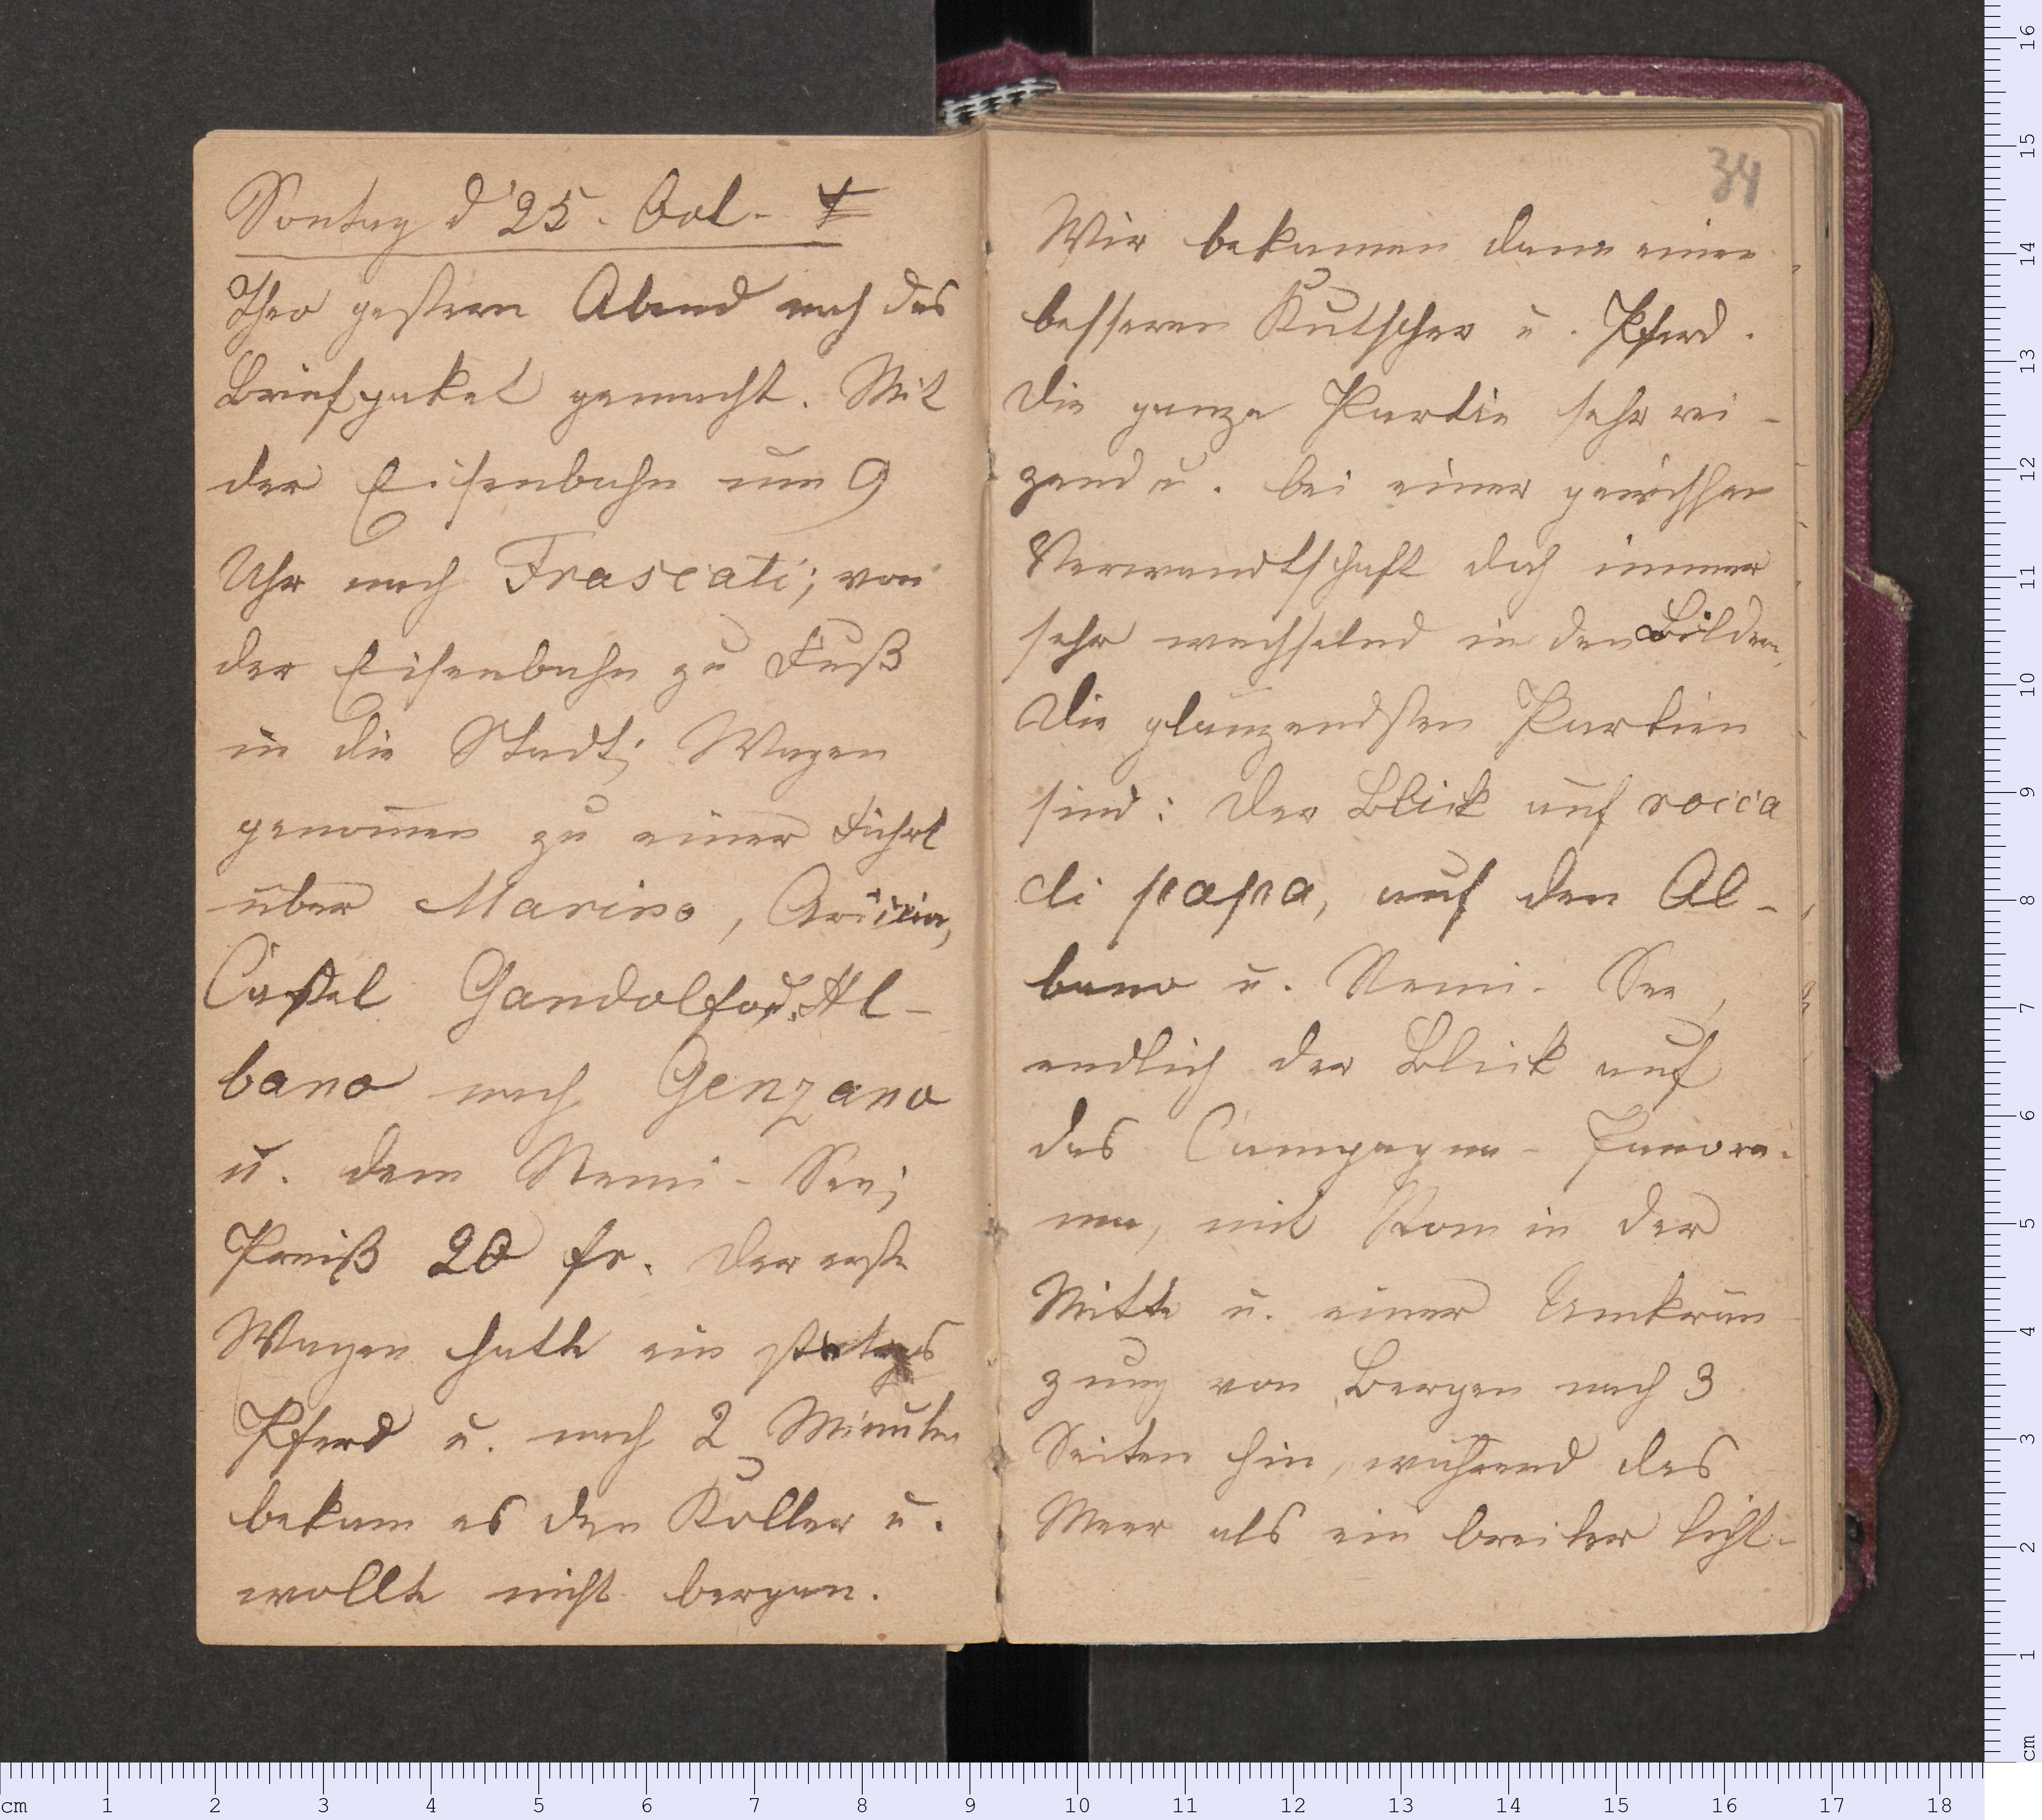 Sontag d 25. Oct.
Theo gestern Abend noch das
Briefpaket gemacht. Mit
der Eisenbahn um 9
Uhr nach Frascati; von
der Eisenbahn zu Fuß
in die Stadt; Wagen
genom̄en zu einer Fahrt
über Marino, Ariccia,
Castel Gandolfo, Al-
bano nach Genzano
u. dem Nemi-See;
Preiß 20 fr. Der erste
Wagen hatte ein
Pferd u. nach 2 Minuten
bekam es den Koller u.
wollte nicht bergan.
34
Wir bekamen dann einen
besseren Kutscher u. Pferd.
Die ganze Partie sehr rei-
zend u. bei einer gewissen
Verwandtschaft doch immer
sehr wechselnd in den Bildern.
Die glänzendsten Partien
sind: Der Blick auf rocca
di papa, auf den Al-
bano u. Nemi-See,
endlich der Blick auf
das Campagna-Panora-
ma, mit Rom in der
Mitte u. einer Umkrän
zung von Bergen nach 3
Seiten hin, während das
Meer als ein breiter licht-